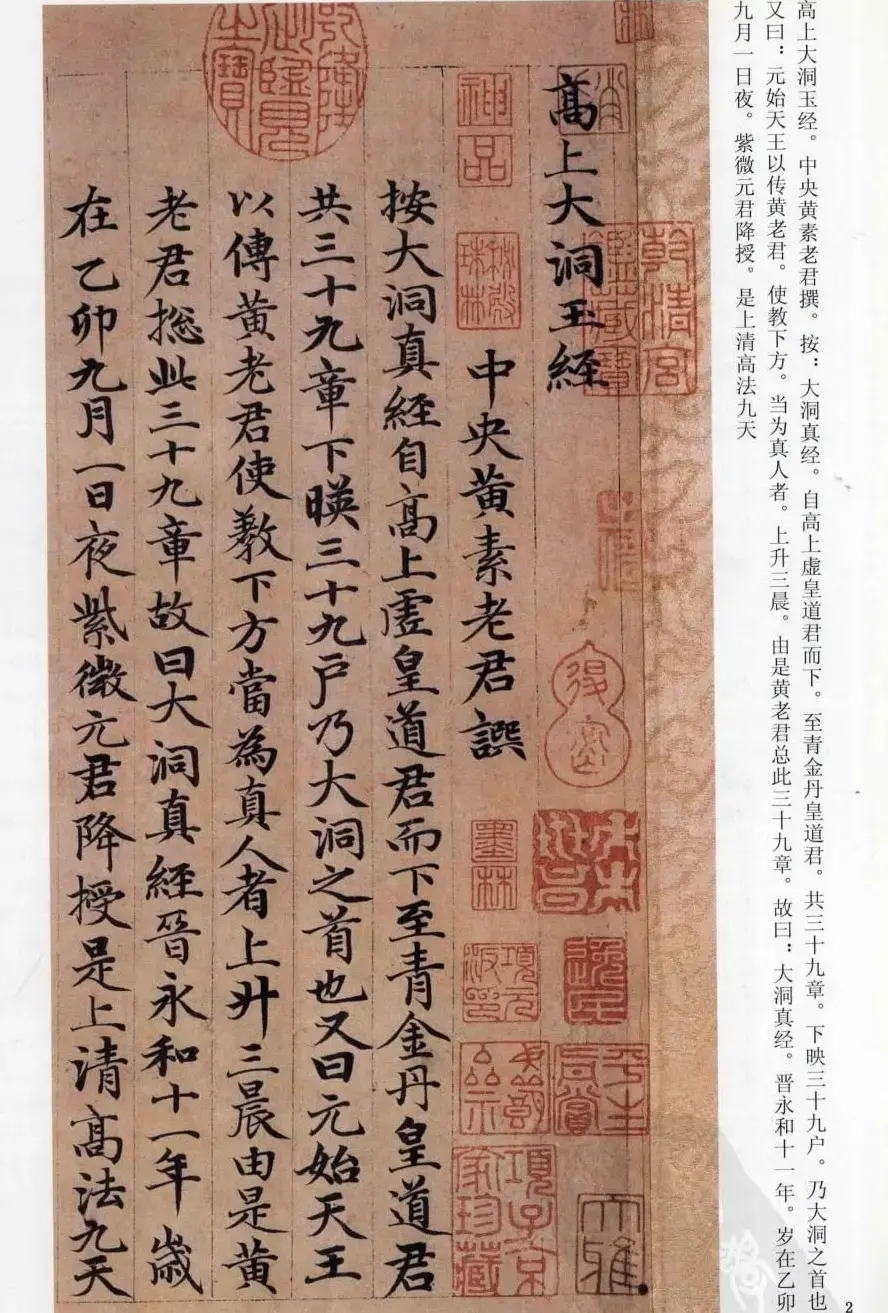 高上大洞玉经。中央黄素老君撰。按：大洞真经。自高上虚皇道君而下。至青金丹皇道君。共三十九章。下映三十九户。乃大洞之首也
又曰：元始天王以传黄老君。使教下方。当为真人者。上升三晨。由是黄老君总此三十九章。故曰：大洞真经。晋永和十一年。岁在乙卯
九月一日夜。紫微元君降授。是上清高法九天
2
高上大洞玉經
中央黃素老君譔
按大洞真經自高上虛皇道君而下至青金丹皇道君
共三十九章下暎三十九戶乃大洞之首也又曰元始天王
以傳黃老君使教下方當為真人者上升三晨由是黃
老君摠此三十九章故曰大洞真經晉永和十一年歲
在乙卯九月一日夜紫微元君降授是上清高法九天
乾隆御覽之寶
神品
乾清宮鑒藏寶
墨林
項元汴印
逸民
平生真賞
項子京家珍藏
大雅